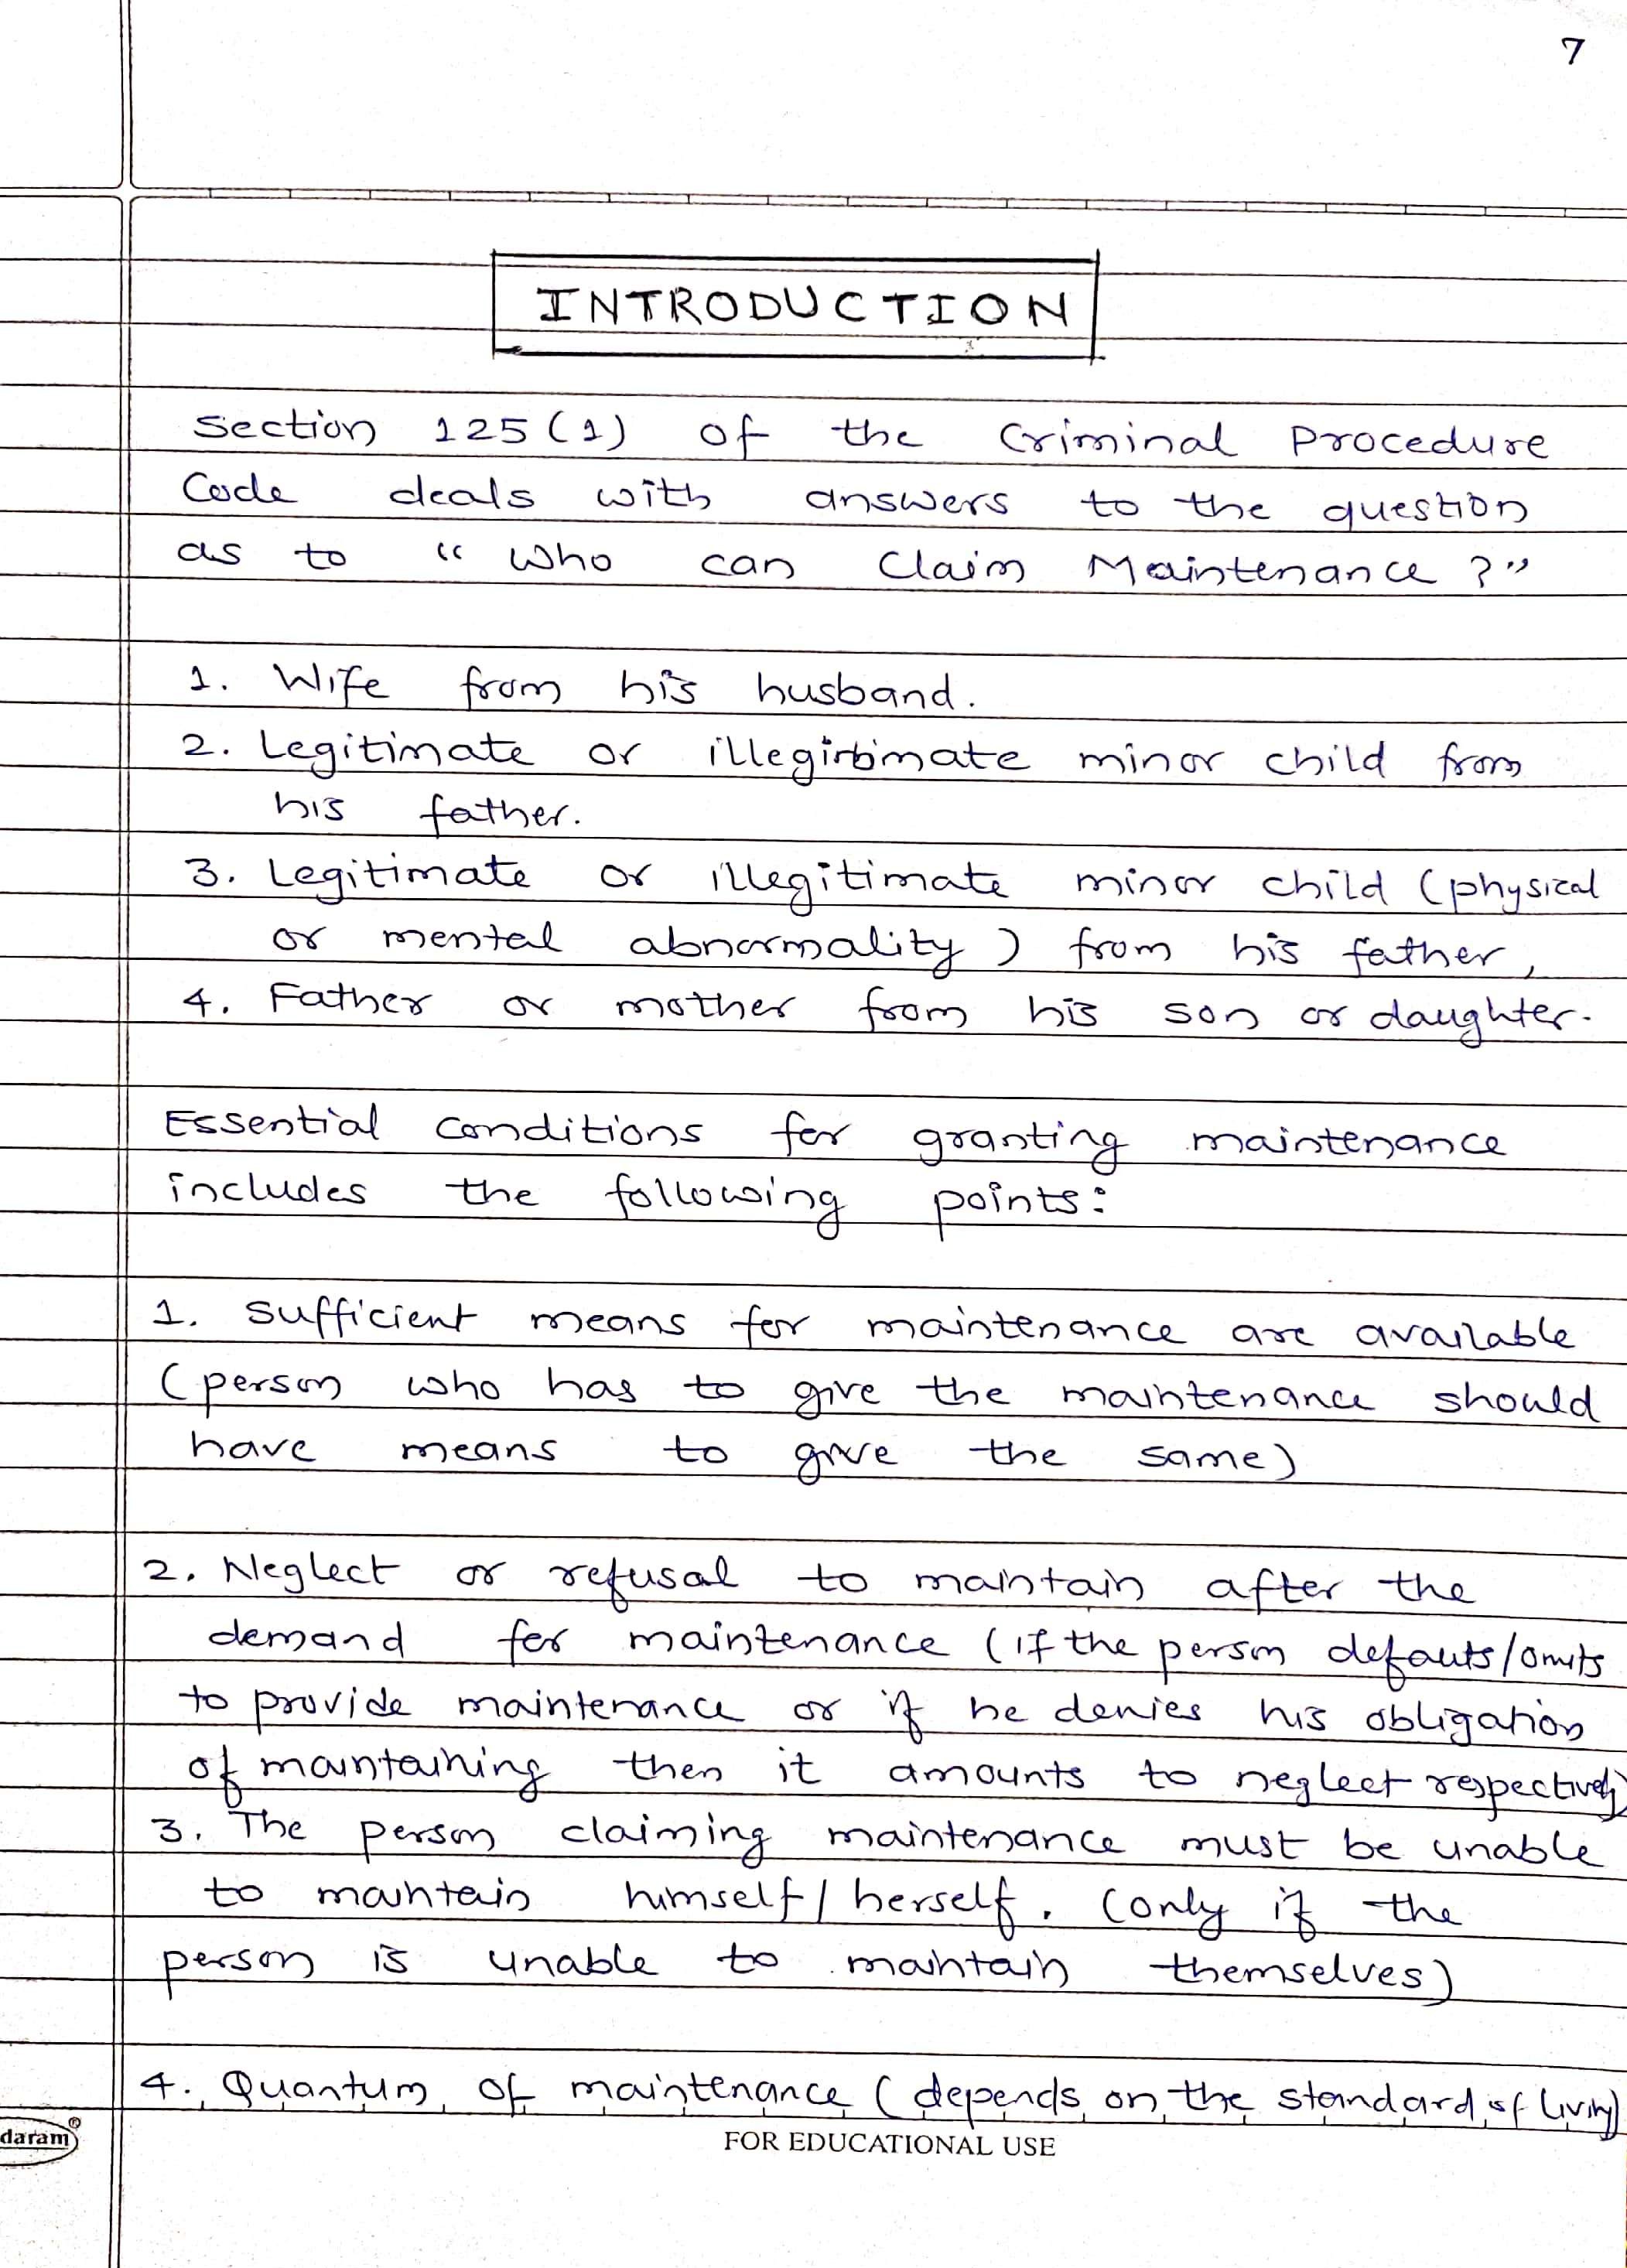 7
INTRODUCTION
Section 125(1) of the Criminal Procedure
Code deals with answers to the question
as to "Who can Claim Maintenance?"
1. Wife from his husband.
2. Legitimate or illegitimate minor child from
his father.
3. Legitimate or illegitimate minor child (physical
or mental abnormality) from his father,
4. Father or mother from his son or daughter.
Essential conditions for granting maintenance
includes the following points:
1. Sufficient means for maintenance are available
(person who has to give the maintenance should
have means to give the same)
2. Neglect or refusal to maintain after the
demand for maintenance (if the person defauts/omits
to provide maintenance or if he denies his obligation
of maintaining then it amounts to neglect respectively)
3. The person claiming maintenance must be unable
to maintain himself/herself. (only if the
person is unable to maintain themselves)
4. Quantum of maintenance (depends on the standard of living)
daram®
FOR EDUCATIONAL USE